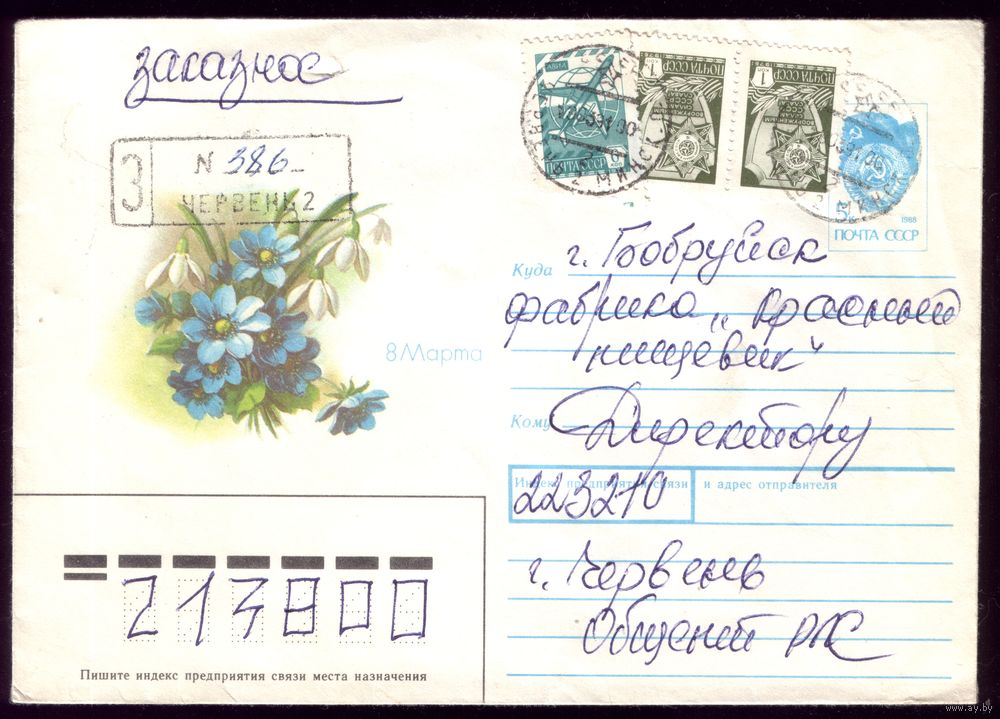 заказное
АВИА
ПОЧТА СССР
6 КОП
1 КОП
ПОЧТА СССР
1 КОП
ПОЧТА СССР
З
N 386
ЧЕРВЕНЬ 2
5
1988
ПОЧТА СССР
Куда г. Бобруйск
фабрика „Красный
пищевик“
8 Марта
Кому Директору
Индекс предприятия связи и адрес отправителя
223210
г. Червень
213800
Пишите индекс предприятия связи места назначения
www.ay.by